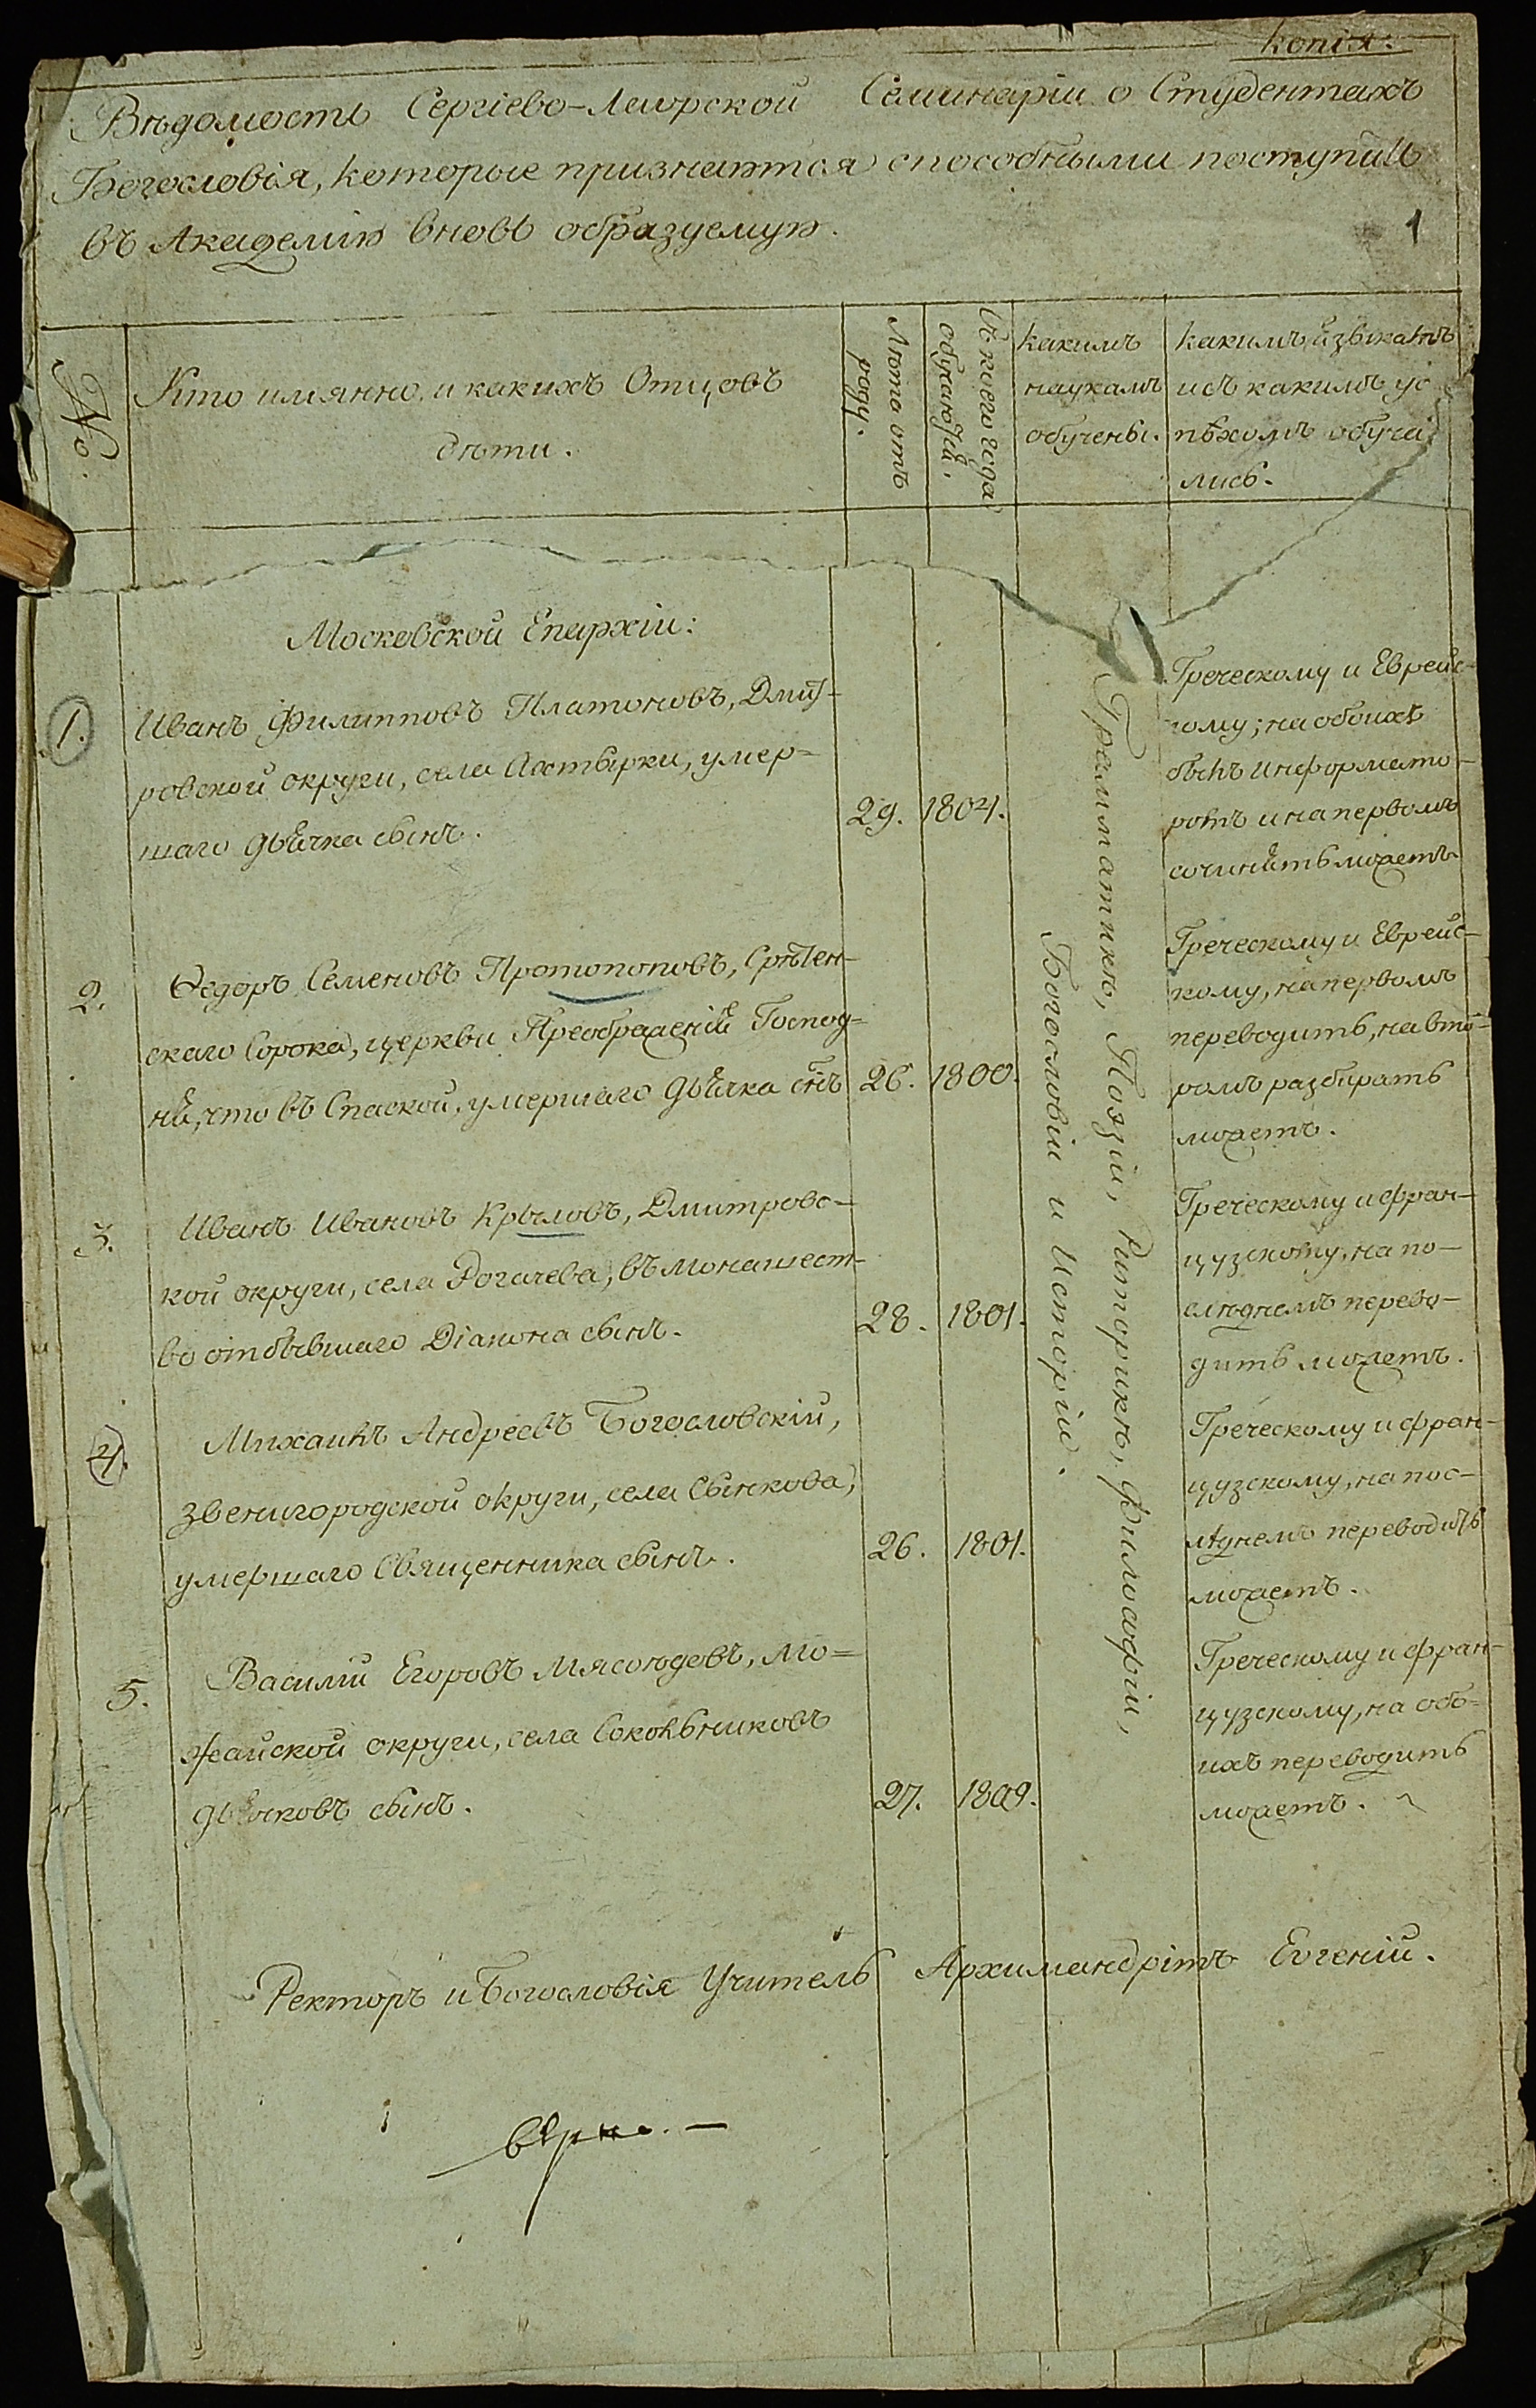 копія.
Вѣдомость Сергіево-Лаврской Семинаріи о Студентахъ
Богословія, которые признаются способными поступить
въ Академію вновь образуемую.
1
№.
Кто имянно, и какихъ Отцовъ
дѣти.
Лѣта отъ
роду.
Съ коего года
обучаются.
какимъ
наукамъ
обучены.
какимъ языкамъ
и съ какимъ ус
пѣхомъ обуча
лись.
Московской Епархіи:
1.
Иванъ Филипповъ Платоновъ, Дмит-
ровской округи, села Ахтырки, умер=
шаго дьячка сынъ.
29.
1804.
Греческому и Еврейс-
кому; на обоихъ
былъ информато-
ромъ и на первомъ
сочинять можетъ.
2.
Ѳедоръ Семеновъ Протопоповъ, Срѣтен-
скаго Сорока, церкви Преображенія Господ-
ня, что въ Спаской, умершаго дьячка сынъ
26.
1800.
Греческому и Еврейс-
кому, на первомъ
переводить, на вто-
ромъ разбирать
можетъ.
3.
Иванъ Ивановъ Крыловъ, Дмитровс-
кой округи, села Рогачева, въ монашест-
во отбывшаго Діакона сынъ.
28.
1801.
Греческому и фран-
цузскому, на по-
слѣднемъ перево-
дить можетъ.
4.
Михаилъ Андреевъ Богословскій,
Звенигородской округи, села Сынкова,
умершаго Священника сынъ.
26.
1801.
Греческому и фран-
цузскому, на пос-
лѣднемъ переводить
можетъ.
5.
Василій Егоровъ Мясоѣдовъ, Мо=
жайской округи, села Сокольниковъ
дьячковъ сынъ.
27.
1809.
Греческому и фран-
цузскому, на обо-
ихъ переводить
можетъ.
Грамматикѣ, Поэзіи, Риторикѣ, Философіи,
Богословіи и Исторіи.
Ректоръ и Богословія Учитель Архимандритъ Евгеній.
вѣрно. —